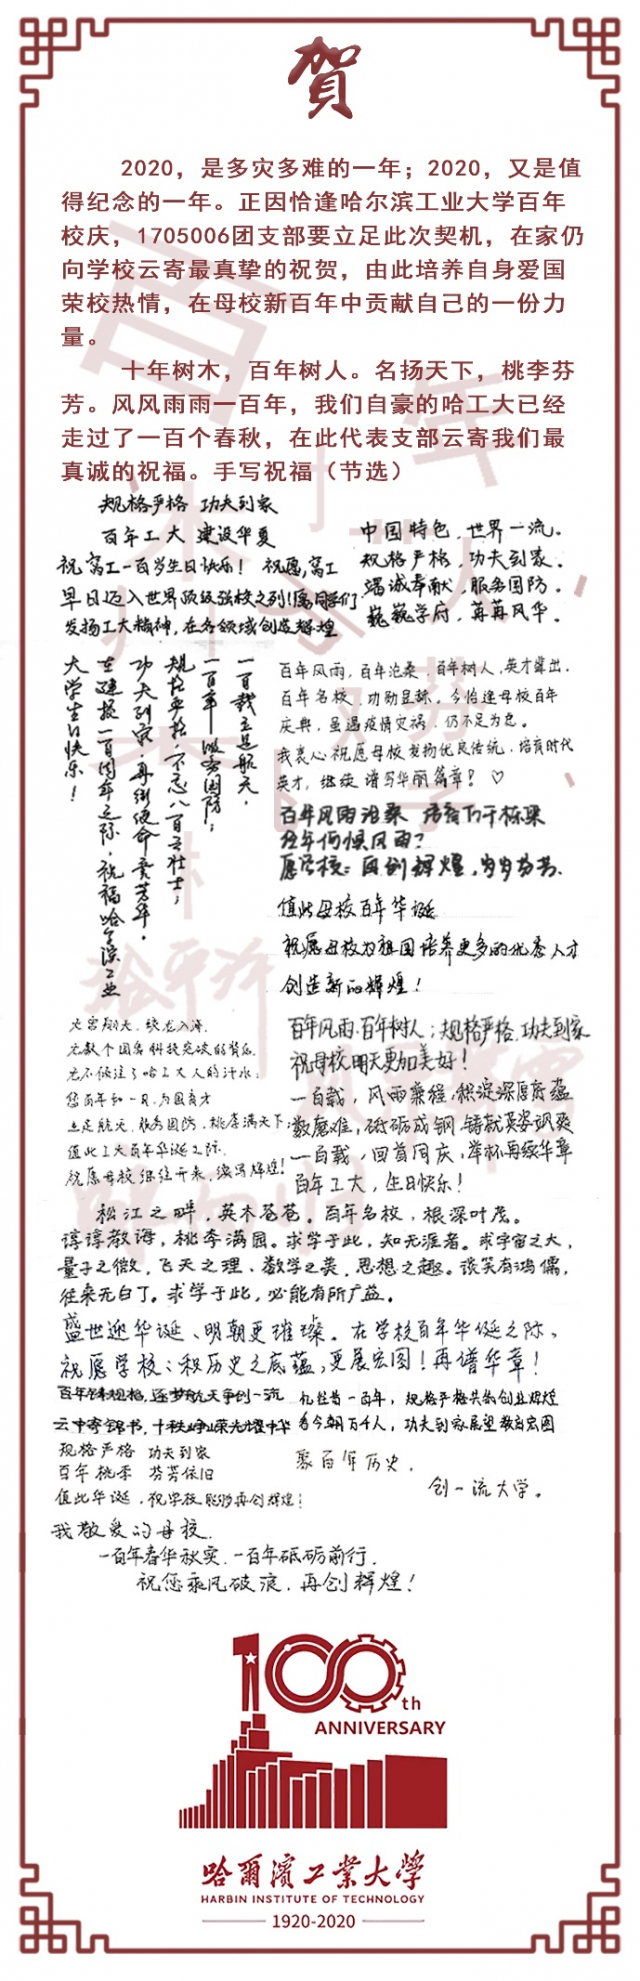 賀
2020，是多灾多难的一年；2020，又是值
得纪念的一年。正因恰逢哈尔滨工业大学百年
校庆，1705006团支部要立足此次契机，在家仍
向学校云寄最真挚的祝贺，由此培养自身爱国
荣校热情，在母校新百年中贡献自己的一份力
量。
十年树木，百年树人。名扬天下，桃李芬
芳。风风雨雨一百年，我们自豪的哈工大已经
走过了一百个春秋，在此代表支部云寄我们最
真诚的祝福。手写祝福（节选）
规格严格 功夫到家
百年工大 建设华夏
祝窝工一百岁生日快乐！ 祝愿，窝工
早日迈入世界顶级强校之列！愿同学们
发扬工大精神，在各领域创造辉煌
中国特色，世界一流。
规格严格，功夫到家。
竭诚奉献，服务国防。
巍巍学府，苒苒风华。
一百载立足航天，
一百年服务国防；
规格严格，不忘八百壮士；
功夫到家，再衔使命贵芳华。
在建校一百周年之际，祝福哈尔滨工业
大学生日快乐！
百年风雨，百年沧桑，百年树人，英才辈出，
百年名校，功勋显赫。今恰逢母校百年
庆典，虽遇疫情灾祸，仍不足为惹。
我衷心祝愿母校发扬优良传统，培育时代
英才，继续谱写华丽篇章！♡
百年风雨沧桑 培育万千栋梁
今年何惧风雨？
愿母校：再创辉煌，岁岁芬芳.
值此母校百年华诞
祝愿母校为祖国培养更多的优秀人才
创造新的辉煌！
九霄翔天，蛟龙入海，
无数个国家科技突破的背后，
无不倾注了哈工大人的汗水；
您百年如一日，为国育才
立足航天，服务国防，桃李满天下；
值此工大百年华诞之际，
祝愿母校继往开来，谱写辉煌！
百年风雨，百年树人；规格严格，功夫到家
祝母校明天更加美好！
一百载，风雨兼程，积淀深厚底蕴
数磨难，砥砺成钢，铸就英姿飒爽
一百载，回首同庆，举杯再续华章
百年工大，生日快乐！
松江之畔，英木苍苍。百年名校，根深叶茂。
谆谆教诲，桃李满园。求学于此，知无涯者。求宇宙之大，
量子之微，飞天之理，数学之美，思想之趣。谈笑有鸿儒，
往来无白丁。求学于此，必能有所广益。
盛世迎华诞、明朝更璀璨。在学校百年华诞之际，
祝愿学校：积历史之底蕴，更展宏图！再谱华章！
百年铸规格，逐梦航天争创一流
云中寄锦书，十秩峥嵘荣光耀中华
忆往昔一百年，规格严格共铸创业辉煌
看今朝万千人，功夫到家展望教育宏图
规格严格 功夫到家
百年桃李 芬芳依旧
值此华诞，祝学校能够再创辉煌！
聚百年历史，
创一流大学。
我敬爱的母校，
一百年春华秋实，一百年砥砺前行，
祝您乘风破浪，再创辉煌！
100th
ANNIVERSARY
哈爾濱工業大學
HARBIN INSTITUTE OF TECHNOLOGY
1920-2020